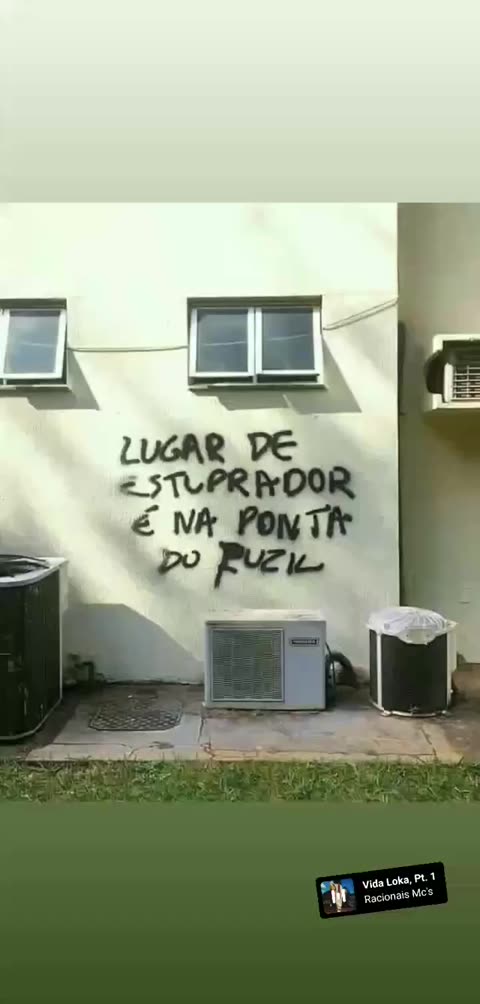 LUGAR DE
ESTUPRADOR
É NA PONTA
DO FUZIL
Vida Loka, Pt. 1
Racionais Mc's